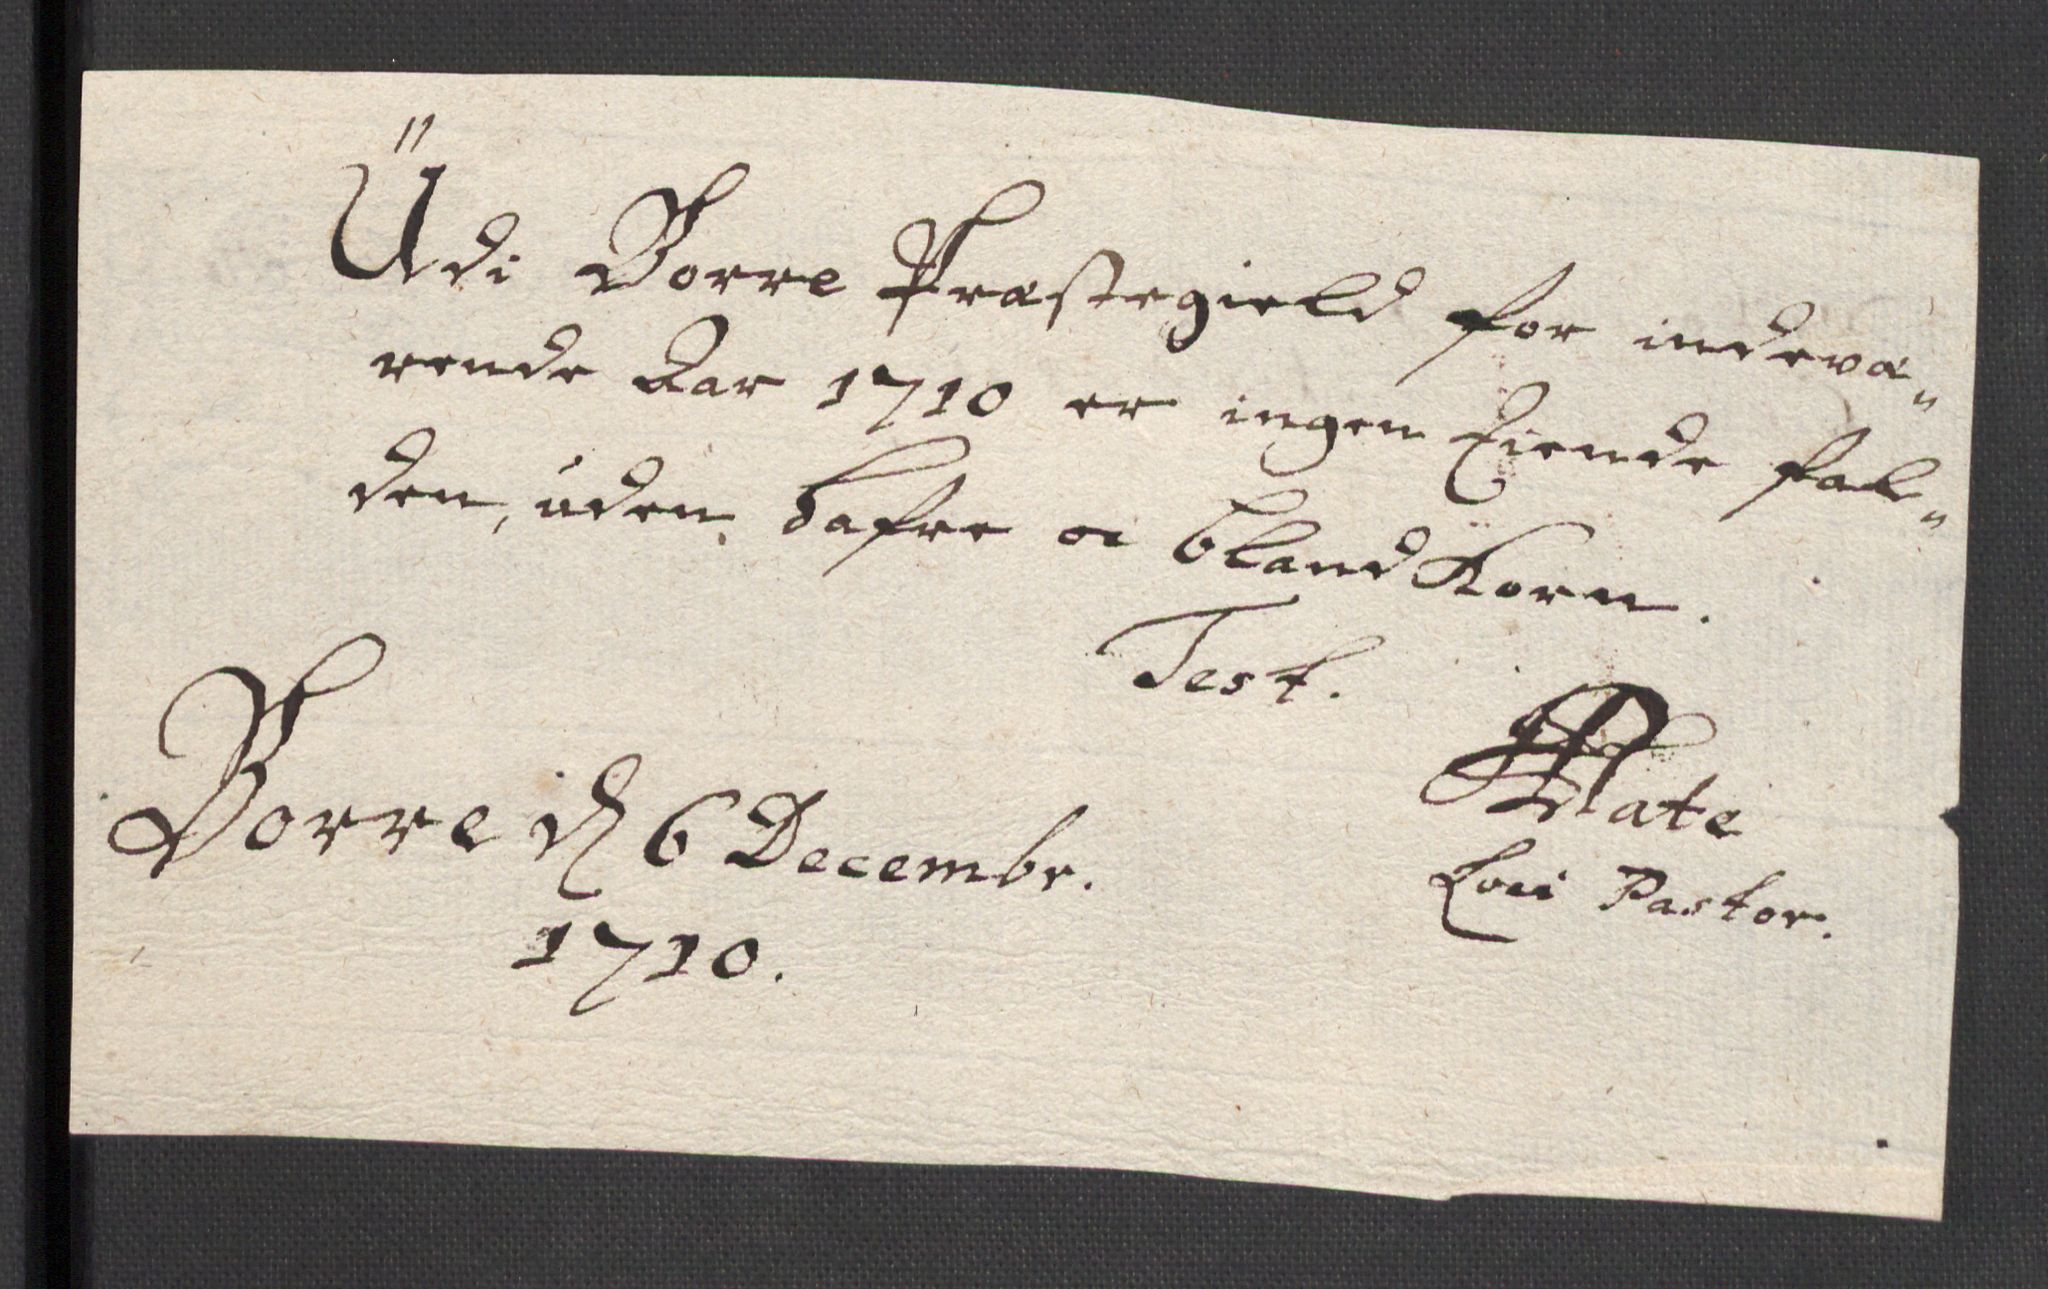 Udi Borre Præstegield for indevæ-
rende Aar 1710 er ingen Tiende fal-
den, uden hafre oc bland Korn.
Test.
Borre d 6 Decembr.
1710.
Mate
Loci Pastor.